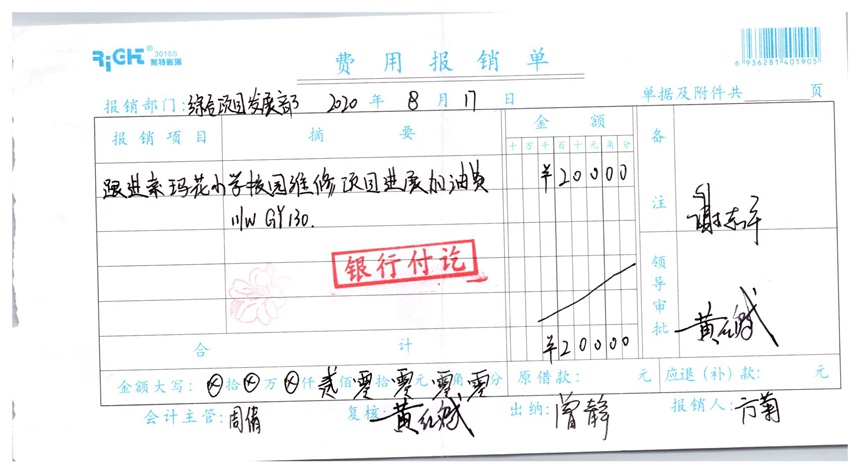 RiGHT® 3015S
费用报销单
6 936281 401905
报销部门：综合项目发展部 2020 年 8 月 17 日 单据及附件共 页
报销项目 摘要 金额 备注
十 万 千 百 十 元 角 分
跟进索玛花小学校园维修项目进展加油费 ¥20000
川W GY130.
谢志平
银行付讫
领导审批
合计 ¥20000
金额大写：⊗拾⊗万⊗仟贰佰零拾零元零角零分 原借款： 元 应退（补）款： 元
会计主管：周倩 复核： 出纳：曾静 报销人：方菊